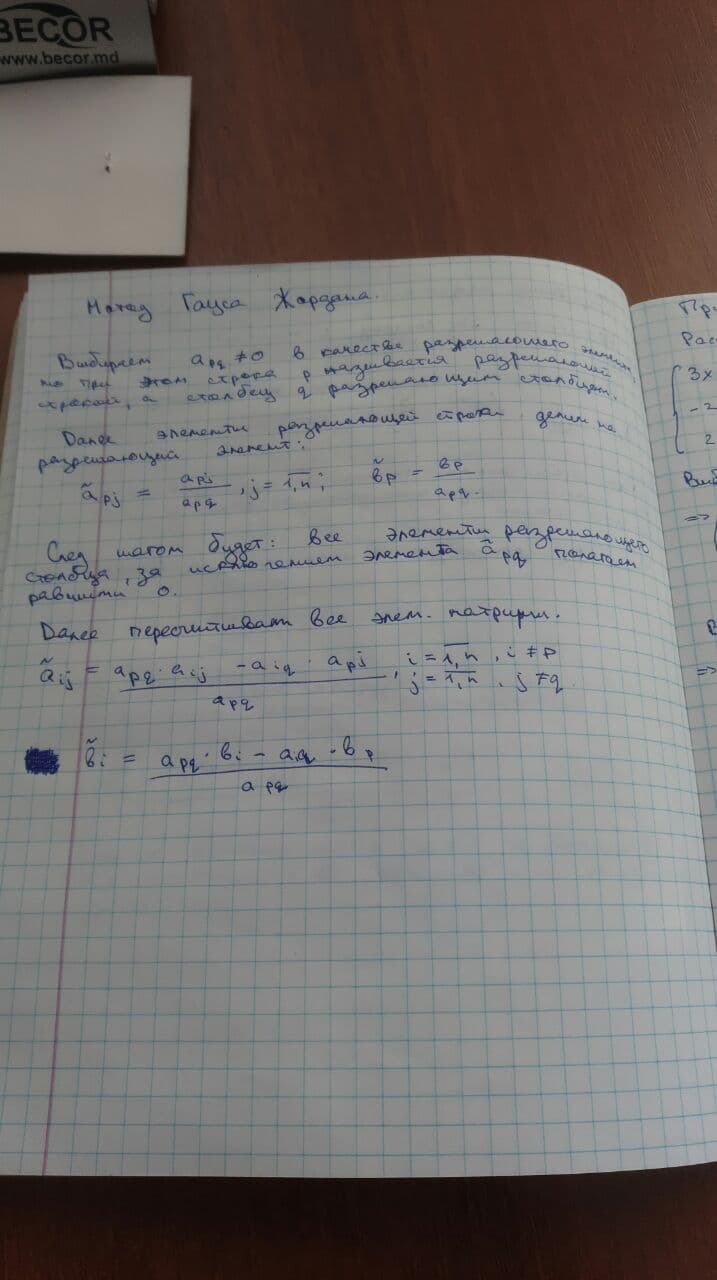 BECOR
www.becor.md
Метод Гаусса Жордана.
Выбираем a_pq ≠ 0 в качестве разрешающего элемент,
но при этом строка p называется разрешающей
строкой, а столбец q разрешающим столбцом.
Далее элементы разрешающей строки делим на
разрешающий элемент:
ã_pj = a_pj / a_pq , j = 1,n ; b̃_p = b_p / a_pq.
След шагом будет: все элементы разрешающего
столбца, за исключением элемента ã_pq полагаем
равными 0.
Далее пересчитывают все элем. матрицы.
ã_ij = (a_pq · a_ij - a_iq · a_pj) / a_pq , i = 1,n , i ≠ p
j = 1,n , j ≠ q
b̃_i = (a_pq · b_i - a_iq · b_p) / a_pq
Пр
Рас
3x
-2
2
Выб
=>
В
=>